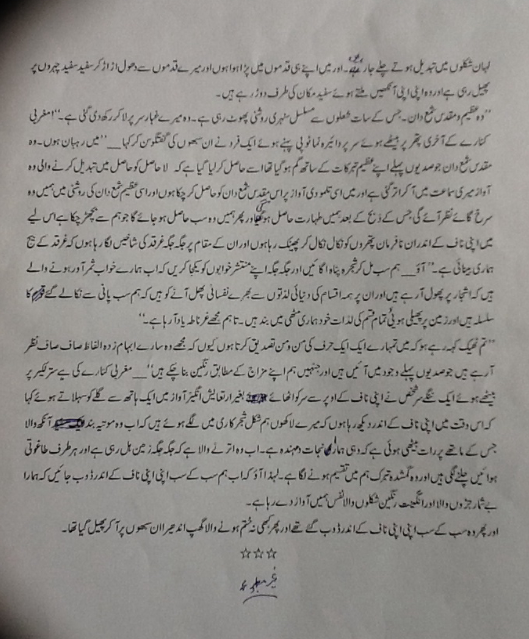 لہان شکلوں میں تبدیل ہوتے چلے جا رہے۔ اور میں اپنے ہی قدموں میں پڑا ہوا ہوں اور میرے قدموں سے دھول اڑ اڑ کر سفید سفید چہروں پر
پھیل رہی ہے اور وہ اپنی اپنی آنکھیں ملتے ہوئے سفید مکان کی طرف دوڑ رہے ہیں۔
''وہ عظیم و مقدس شمع دان۔ جس کے سات شعلوں سے مسلسل سنہری روشنی پھوٹ رہی ہے۔ وہ میرے غبارِ سر پر لا کر رکھ دی گئی ہے۔'' مغربی
کنارے کے آخری پتھر پر بیٹھے ہوئے سر پر دائرہ نما ٹوپی پہنے ہوئے ایک فرد نے ان سبھوں کی گفتگو سن کر کہا__ ''میں رہبان ہوں۔ وہ
مقدس شمع دان جو صدیوں پہلے اپنے عظیم تبرکات کے ساتھ گم ہو گیا تھا اسے حاصل کر لیا گیا ہے کہ لاحاصل کو حاصل میں تبدیل کرنے والی وہ
آواز میری سماعت میں آ کر اتر گئی ہے اور میں اسی تلمودی آواز پر اس مقدس شمع دان کو حاصل کر چکا ہوں اور اسی عظیم شمع دان کی روشنی میں ہمیں وہ
سرخ گائے نظر آئے گی جس کے ذبح کے بعد ہمیں طہارت حاصل ہوگی اور پھر ہمیں وہ سب حاصل ہو جائے گا جو ہم سے بچھڑ چکا ہے اس لیے
میں اپنی ناف کے اندر ان نافرمان پتھروں کو نکال نکال کر پھینک رہا ہوں اور ان کے مقام پر جگہ جگہ غرقد کی شاخیں لگا رہا ہوں کہ غرقد کے بیج
ہماری بینائی ہے۔'' آؤ__ ہم سب مل کر شجرہ پناہ اگائیں اور جگہ جگہ اپنے منتشر خوابوں کو یکجا کریں کہ اب ہمارے خواب ثمر آور ہونے والے
ہیں کہ اشجار پر پھول آ رہے ہیں اور ان پر ہمہ اقسام کی دنیائی لذتوں سے بھرے نفسانی پھل آنے کو ہیں کہ ہم سب پانی سے نکالے گئے قوم کا
سلسلہ ہیں اور زمین پر پھیلی ہوئی تمام قسم کی لذات خود ہماری مٹھی میں بند ہیں۔ تاہم مجھے غرناطہ یاد آ رہا ہے۔''
''تم ٹھیک کہہ رہے ہو کہ میں تمہارے ایک ایک حرف کی من و من تصدیق کرتا ہوں کیوں کہ مجھے وہ سارے ابہام زدہ الفاظ صاف صاف نظر
آ رہے ہیں جو صدیوں پہلے وجود میں آئیں ہیں اور جنہیں ہم اپنے مزاج کے مطابق رنگین بنا چکے ہیں''__ مغربی کنارے کی بے ستر لکیر پر
بیٹھے ہوئے ایک ننگے سر شخص نے اپنی ناف کے اوپر سے سر کو اٹھائے بغیر ارتعایش انگیز آواز میں ایک ہاتھ سے گلے کو سہلاتے ہوئے کہا
کہ اس وقت میں اپنی ناف کے اندر دیکھ رہا ہوں کہ میرے لاکھوں ہم شکل شجر کاری میں لگے ہوئے ہیں کہ اب وہ موتیہ بند آنکھ والا
جس کے ماتھے پر رات بیٹھی ہوئی ہے کہ وہی ہمارا نجات دہندہ ہے۔ اب وہ اترنے والا ہے کہ جگہ جگہ زمین ہل رہی ہے اور ہر طرف طاغوتی
ہوائیں چلنے لگی ہیں اور وہ گمشدہ تبرک ہم میں تقسیم ہونے لگا ہے۔ لہٰذا آؤ کہ اب ہم سب کے سب اپنی اپنی ناف کے اندر ڈوب جائیں کہ ہمارا
بے شمار جڑوں والا اور انگنت رنگین شکلوں والا نفس ہمیں آواز دے رہا ہے۔
اور پھر وہ سب کے سب اپنی اپنی ناف کے اندر ڈوب گئے تھے اور پھر کبھی نہ ختم ہونے والا گھپ اندھیرا ان سبھوں پر آ کر پھیل گیا تھا۔
☆☆☆
غیر مطبوعہ